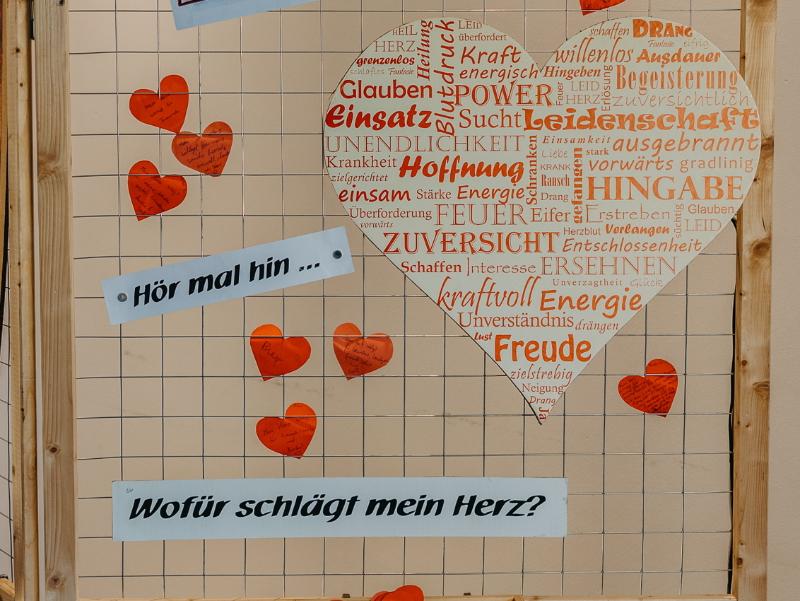 HEIL
LEID
schaffen DRANG
HERZ Heilung Blutdruck überfordert
Fantasie eifrig
grenzenlos Kraft willenlos Ausdauer
schlafloses Fantasie energisch Hingeben Begeisterung
Glauben POWER Feuer LEID Erlösung zuversichtlich
HERZ
Einsatz Sucht Leidenschaft
UNENDLICHKEIT Einsamkeit ausgebrannt
Krankheit Hoffnung Schranken Liebe stark vorwärts gradlinig
KRANK gefangen
zielgerichtet Rausch HINGABE
einsam Stärke Energie Drang
Überforderung FEUER Eifer Erstreben süchtig Glauben
vorwärts Herzblut Verlangen LEID
ZUVERSICHT Entschlossenheit
Schaffen Interesse ERSEHNEN
Unverzagtheit Glück
kraftvoll Energie
Unverständnis drängen
Lust Freude
zielstrebig
Neigung
Drang
Ja
Hör mal hin ...
Wofür schlägt mein Herz?